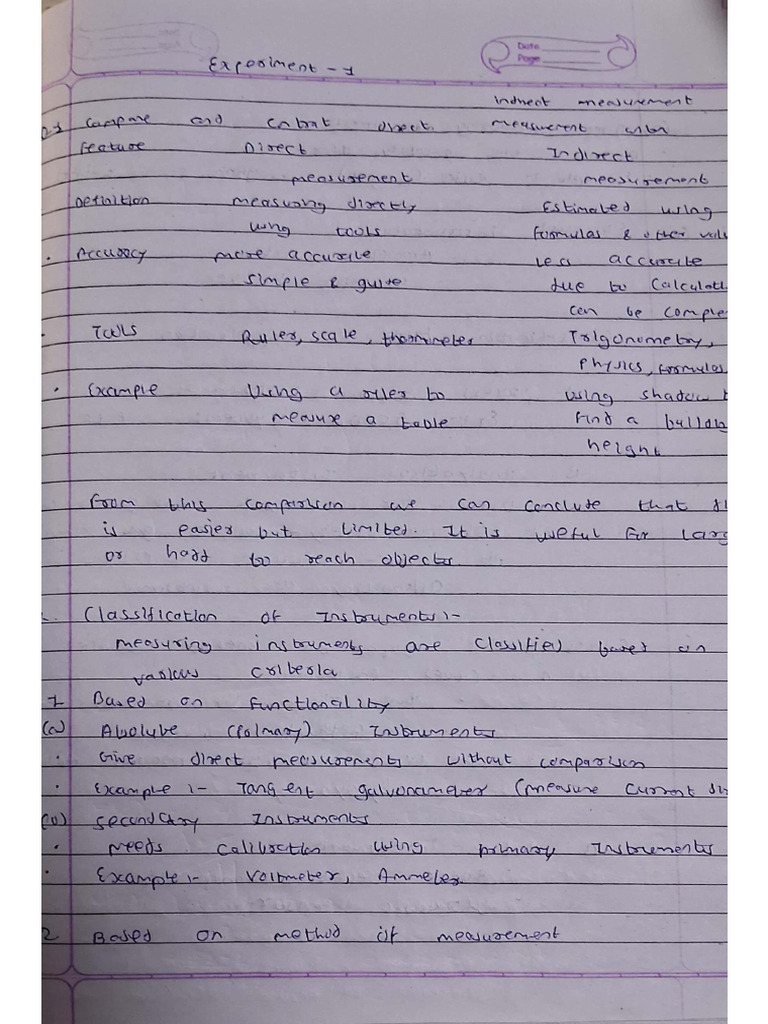 Date
Page
Experiment - 1
Indirect measurement
Q.1 Compare and cntrat direct measurement with
Feature Direct Indirect
measurement measurement
Definition measuring directly Estimated using
using tools formulas & other
Accuracy more accurate Less accurate
simple & due to
can be
Tools Ruler, scale, thermometer Trigonometry,
Physics, formulas
Example Using a ruler to using shadow
measure a table find a
height
From this comparison we can conclude that
is easier but limited. It is useful for
or hard to reach objects
Classification of Instruments :-
measuring instruments are classified based on
various criteria
1 Based on functionality
(a) Absolute (Primary) Instruments
Give direct measurements without comparison
Example :- Tangent galvanometer (measure current
secondary Instruments
needs calibration using primary Instruments
Example :- voltmeter, Ammeter.
2 Based on method of measurement